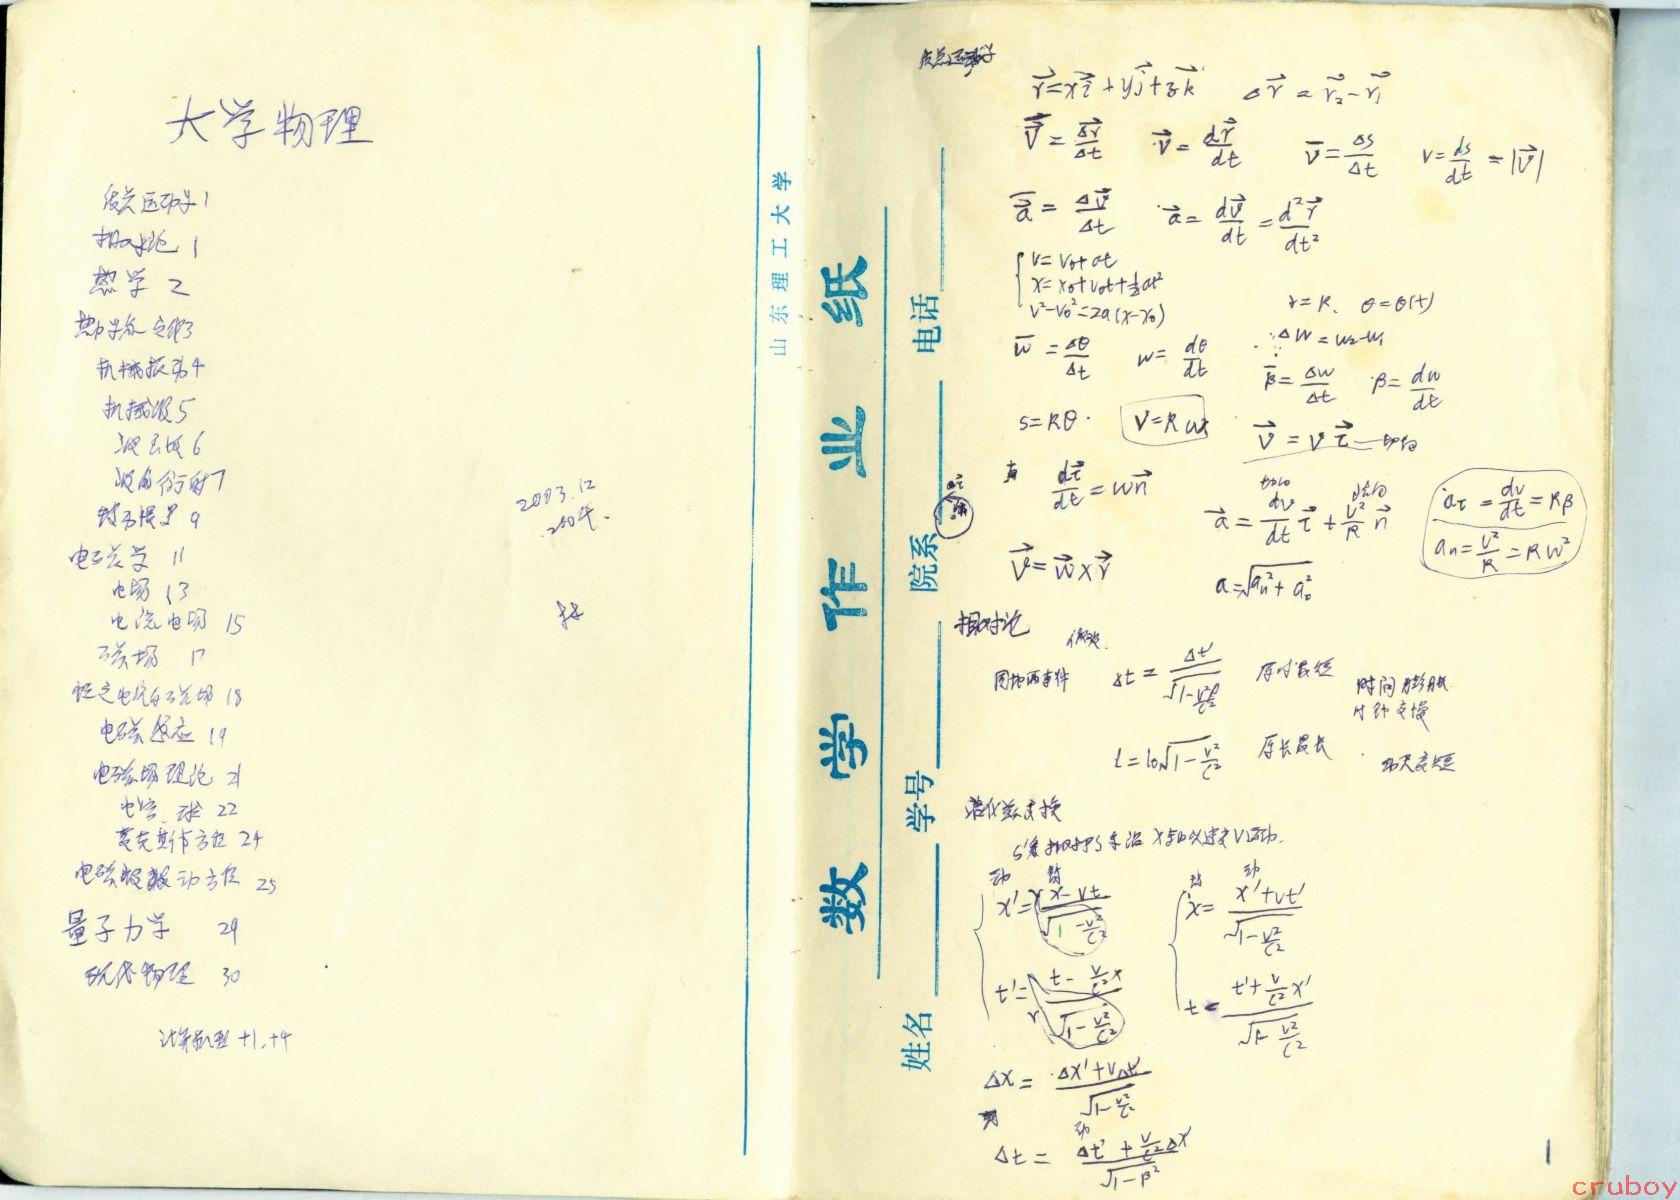 大学物理
质点运动学 1
相对论 1
热学 2
热力学 定律3
机械振动4
机械波5
波干涉 6
波的衍射7
9
电磁学 11
电场 13
电流电场 15
磁场 17
稳定电流的磁场 18
电磁感应 19
电磁场理论 21
22
麦克斯韦方程 24
电磁波 动方程 25
量子力学 29
现代物理 30
+1,+4
2003.12
山东理工大学
数学作业纸
姓名 学号 院系 电话
质点运动学
r⃗=xi⃗+yj⃗+zk⃗ Δr⃗=r⃗₂-r⃗₁
V⃗=Δr⃗/Δt v⃗=dr⃗/dt v̄=Δs/Δt v=ds/dt=|v⃗|
a⃗=Δv⃗/Δt a⃗=dv⃗/dt=d²r⃗/dt²
v=v₀+at
x=x₀+v₀t+½at²
v²-v₀²=2a(x-x₀)
r=R, θ=θ(t)
w̄=Δθ/Δt w=dθ/dt Δw=w₂-w₁
β̄=Δw/Δt β=dw/dt
s=Rθ V=Rw v⃗=vτ⃗ 切向
dτ⃗/dt=wn⃗
切向 法向
a⃗=dv/dt τ⃗+v²/R n⃗
aτ=dv/dt=Rβ
an=v²/R=Rw²
v⃗=w⃗×r⃗ a=√(an²+aτ²)
相对论
同地两事件 Δt=Δt'/√(1-v²/c²) 原时最短 时间膨胀
动钟变慢
l=l₀√(1-v²/c²) 原长最长 动尺变短
洛伦兹变换
S'系相对于S系沿X轴以速度V运动.
动 静 静 动
x'=(x-vt)/√(1-v²/c²) x=(x'+vt')/√(1-v²/c²)
t'=(t-v/c² x)/√(1-v²/c²) t=(t'+v/c² x')/√(1-v²/c²)
Δx=(Δx'+vΔt')/√(1-v²/c²)
动
Δt=(Δt'+v/c² Δx')/√(1-β²)
1
cruboy